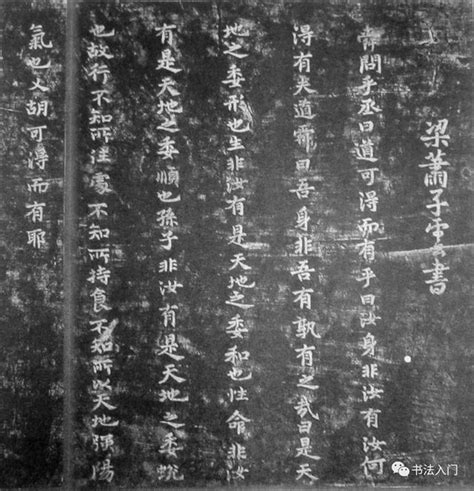 梁蕭子雲書
舜問乎丞曰道可得而有乎曰汝身非汝有汝何
得有夫道舜曰吾身非吾有孰有之哉曰是天
地之委形也生非汝有是天地之委和也性命非汝
有是天地之委順也孫子非汝有是天地之委蛻
也故行不知所往處不知所持食不知所以天地强陽
氣也又胡可得而有耶
书法入门